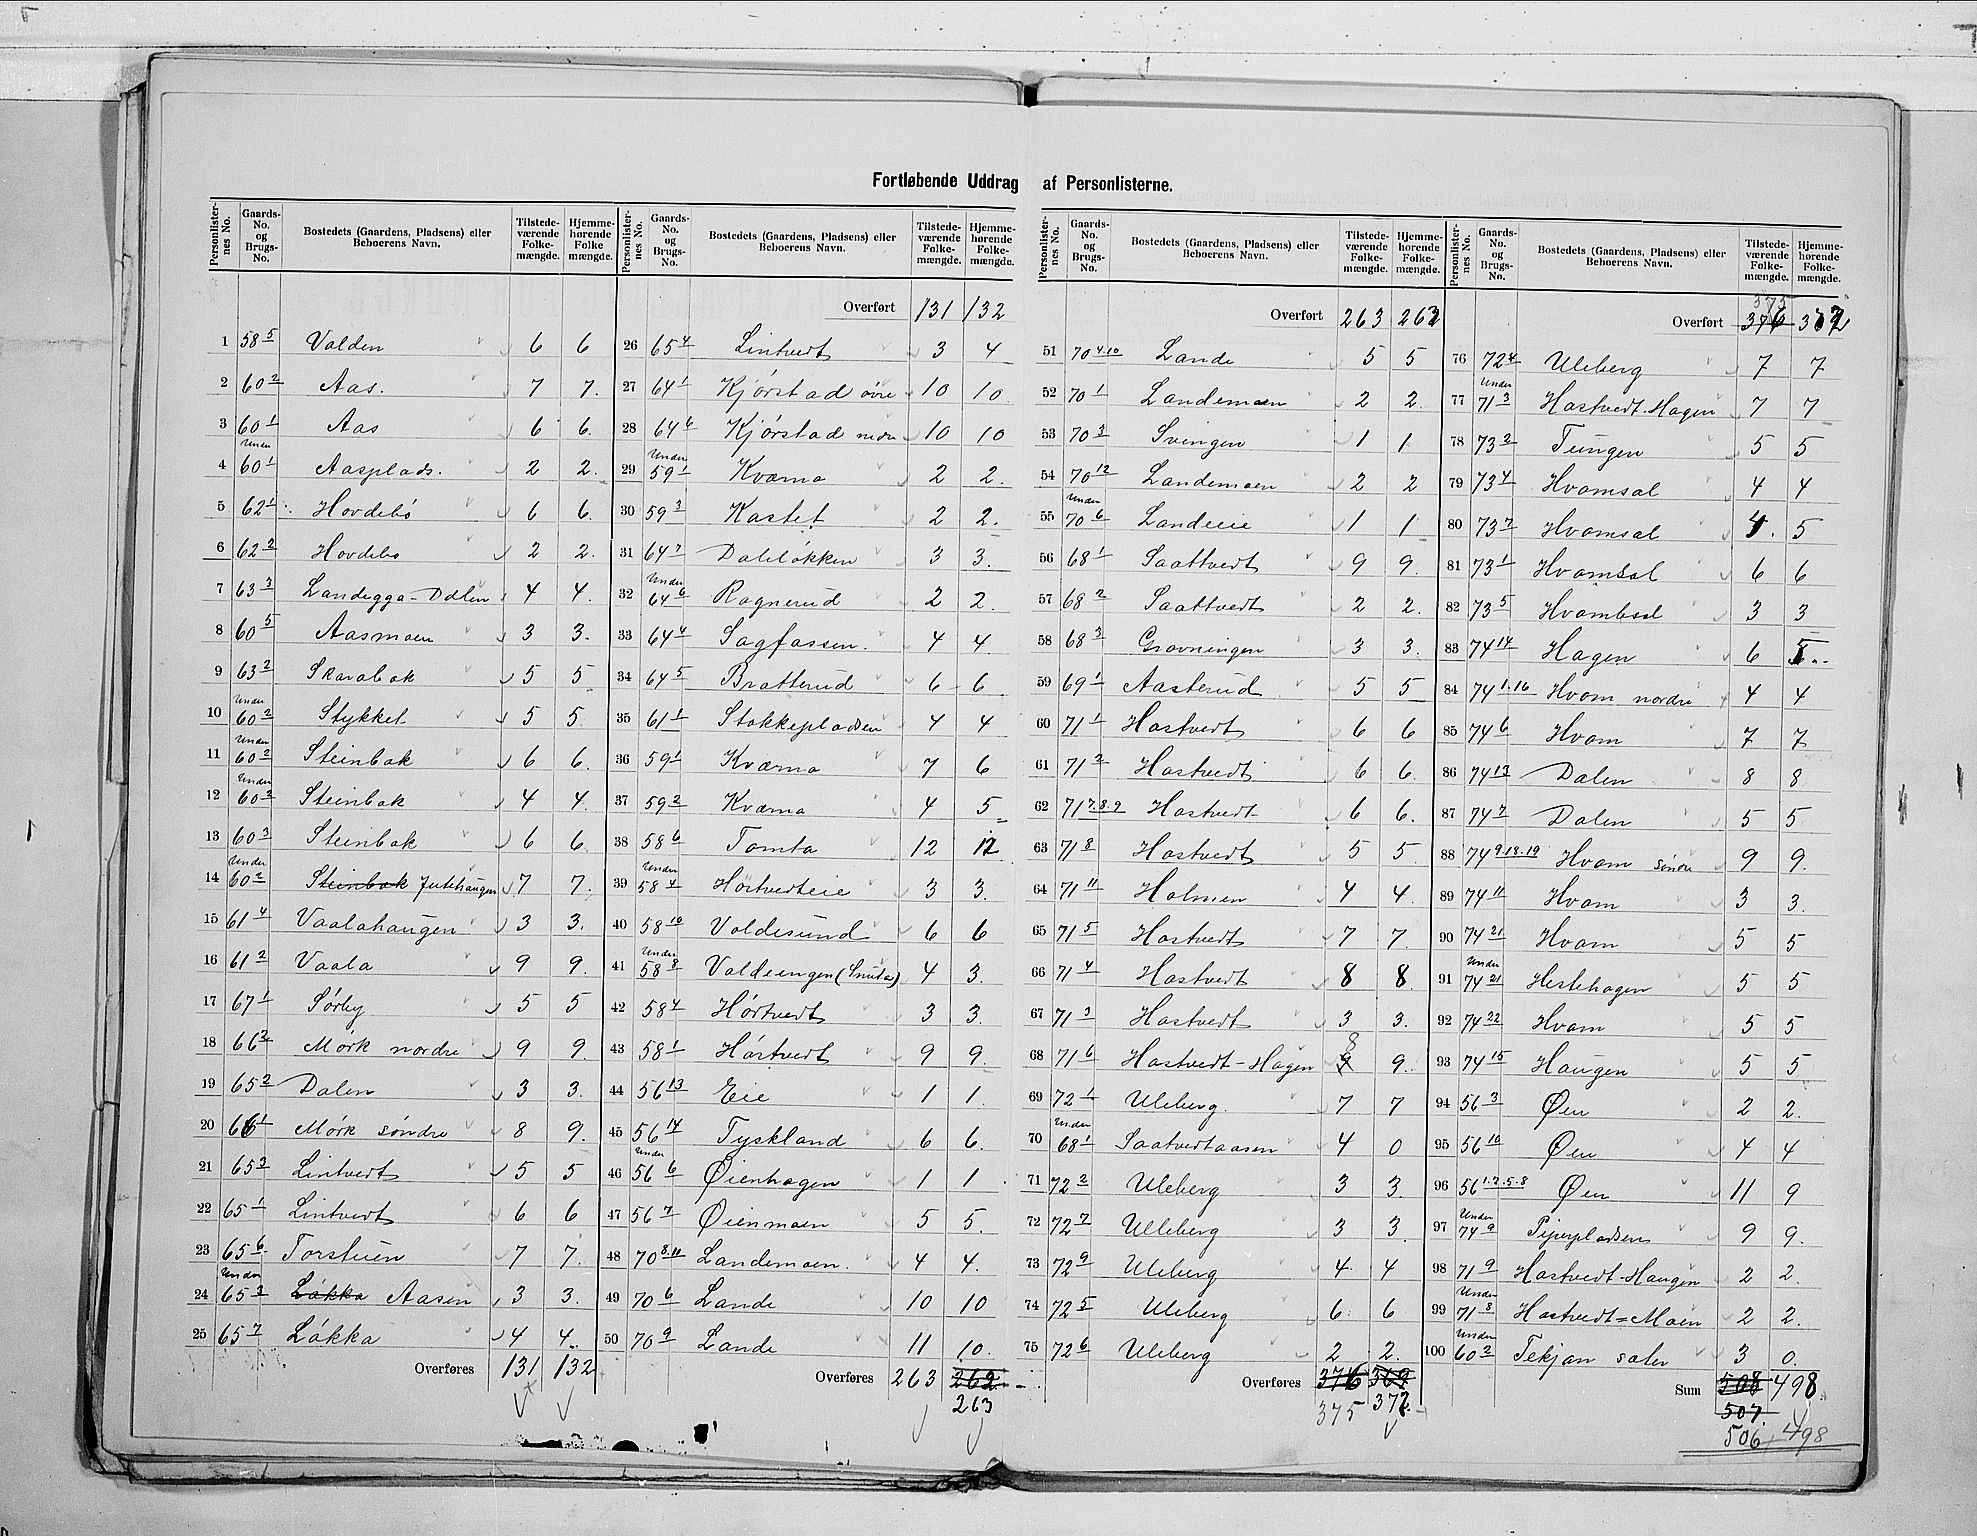 Fortløbende Uddrag af Personlisterne.
Personlister-nes No. Gaards-No. og Brugs-No. Bostedets (Gaardens, Pladsens) eller Beboerens Navn. Tilstede-værende Folke-mængde. Hjemme-hørende Folke mængde.
1 58 5 Valden 6 6
2 60 2 Aas. 7 7.
3 60 1 Aas 6 6.
4 Under 60 1 Aasplads. 2 2.
5 62 1 Hovdebø 6 6.
6 62 2 Hovdebø 2 2.
7 63 3 Landegga-Dalen 4 4.
8 60 5 Aasmoen 3 3.
9 63 2 Skarabak 5 5
10 Under 60 2 Stykket 5 5.
11 Under 60 2 Steinbak 6 6.
12 Under 60 2 Steinbak 4 4.
13 60 3 Steinbak 6 6.
14 Under 60 2 Steinbak Jutehaugen 7 7.
15 61 4 Vaalahaugen 3 3.
16 61 2 Vaala 9 9.
17 67 1 Sørby 5 5
18 66 2 Mørk nordre 9 9.
19 65 2 Dalen 3 3.
20 66 1 Mørk søndre 8 9.
21 65 3 Lintvedt 5 5
22 65 1 Lintvedt 6 6
23 65 6 Torstuen 7 7.
24 Under 65 3 Løkka Aasen 3 3.
25 65 7 Løkka 4 4.
Overføres 131 132
Personlister-nes No. Gaards-No. og Brugs-No. Bostedets (Gaardens, Pladsens) eller Beboerens Navn. Tilstede-værende Folke-mængde. Hjemme-hørende Folke-mængde.
Overført 131 132
26 65 4 Lintvedt 3 4
27 64 1 Kjørstad øvre 10 10
28 64 6 Kjørstad nedre 10 10
29 Under 59 1 Kværna 2 2.
30 59 3 Kastet 2 2.
31 64 7 Daleløkken 3 3.
32 Under 64 6 Ragnerud 2 2.
33 64 4 Sagfossen. 4 4
34 64 5 Bratterud 6 6
35 61 1 Stokkepladsen 4 4
36 59 1 Kværna 7 6
37 59 2 Kværna 4 5
38 58 6 Tomta 12 12
39 Under 58 4 Hørtvedteie 3 3.
40 58 10 Valdesund 6 6
41 Under 58 8 Valdeengen (Snuta) 4 3.
42 58 4 Hørtvedt 3 3.
43 58 1 Hørtvedt 9 9.
44 56 13 Eie 1 1.
45 56 14 Tyskland 6 6.
46 Under 56 6 Øienhagen 1 1
47 56 7 Øienmoen 5 5.
48 70 8.11 Landemoen. 4 4.
49 70 6 Lande 10 10
50 70 9 Lande 11 10.
Overføres 263 262
263
Personlister-nes No. Gaards-No. og Brugs-No. Bostedets (Gaardens, Pladsens) eller Beboerens Navn. Tilstede-værende Folke-mængde. Hjemme-hørende Folke-mængde.
Overført 263 263
51 70 4.10 Lande 5 5
52 70 1 Landemoen 2 2.
53 70 3 Svingen 1 1
54 70 12 Landemoen 2 2
55 Under 70 6 Landeeie 1 1
56 68 1 Saattvedt 9 9.
57 68 2 Saattvedt 2 2.
58 68 3 Gravningen 3 3.
59 69 1 Aasterud 5 5
60 71 1 Hastvedt 6 6
61 71 2 Hastvedt 6 6.
62 71 7.8.9 Hastvedt 6 6.
63 71 8 Hastvedt 5 5.
64 71 11 Holmen 4 4.
65 71 5 Hastvedt 7 7.
66 71 4 Hastvedt 8 8.
67 71 3 Hastvedt 3 3.
68 71 6 Hastvedt-Hagen 9 8 9.
69 72 1 Uleberg. 7 7
70 Under 68 1 Saatvedtaasen 4 0
71 72 2 Uleberg 3 3.
72 72 7 Uleberg 3 3.
73 72 9 Uleberg 4. 4
74 72 5 Uleberg 6 6
75 72 6 Uleberg 2 2.
Overføres 376 369
375 372
Personlister-nes No. Gaards-No. og Brugs-No. Bostedets (Gaardens, Pladsens) eller Beboerens Navn. Tilstede-værende Folke-mængde. Hjemme-hørende Folke-mængde.
375
Overført 376 372
76 72 4 Uleberg 7 7
77 Under 71 3 Hastvedt-Hagen 7 7
78 73 2 Tungen 5 5
79 73 4 Hvamsal 4 4
80 73 7 Hvamsal 4. 5
81 73 1 Hvamsal 6 6
82 73 5 Hvambsal 3 3
83 74 14 Hagen 6 5
84 74 1.16 Hvam nordre 4 4
85 74 6 Hvam 7 7
86 74 13 Dalen 8 8
87 74 7 Dalen 5 5
88 74 9.18.19 Hvam søndre 9 9.
89 74 11 Hvam 3 3.
90 74 21 Hvam 5 5
91 Under 74 21 Hestehagen 5 5
92 74 22 Hvam 5 5
93 74 15 Haugen 5 5
94 56 3 Øen 2 2.
95 56 10 Øen 4 4
96 56 1.2.5.8 Øen 11 9
97 Under 74 9 Piperpladsen 9 9.
98 71 9 Hastvedt-Haugen 2 2.
99 Under 71 8 Hastvedt=Moen 2 2.
100 Under 60 2 Tekjan sæter 3 0.
Sum 508 498
507
506 498